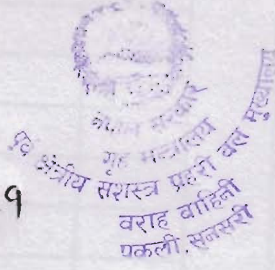 नेपाल सरकार
गृह मन्त्रालय
पूर्व क्षेत्रीय सशस्त्र प्रहरी बल मुख्यालय
वराह वाहिनी
पकली, सुनसरी
१